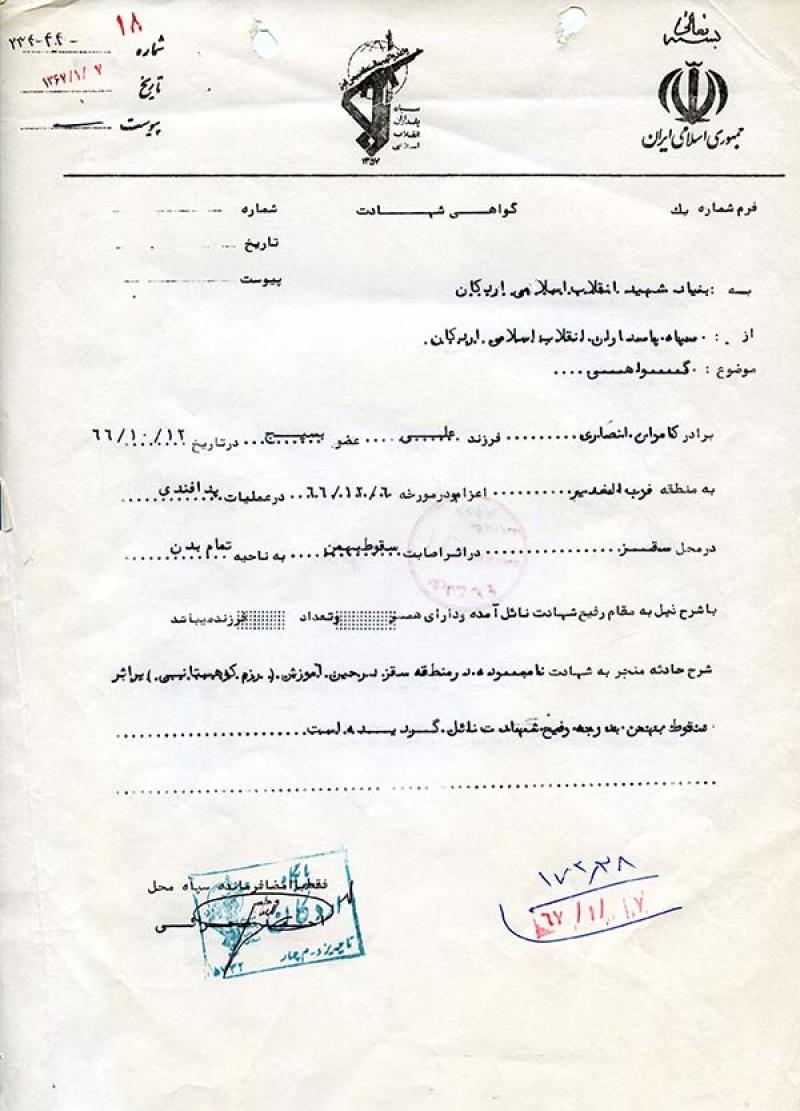 بسمه تعالی
جمهوری اسلامی ایران
سپاه
پاسداران
انقلاب
اسلامی
۱۳۵۷
شماره ۱۸ - ۴۰۴-۲۳۴
تاریخ ۱۳۶۷/۱/۷
پیوست
فرم شماره یک
گواهی شهادت
شماره
تاریخ
پیوست
به : بنیاد شهید انقلاب اسلامی اردکان
از : سپاه پاسداران انقلاب اسلامی اردکان
موضوع : گواهی ....
برادر کامران انصاری .......... فرزند علی .... عضو بسیج ... در تاریخ ۶۶/۱۰/۱۲
به منطقه قرب الغدیر .......... اعزام و در مورخه ۶۶/۱۲/۰۶ در عملیات پدافندی
در محل سقز ................ در اثر اصابت سقوط بهمن .... به ناحیه تمام بدن
با شرح ذیل به مقام رفیع شهادت نائل آمده و دارای همسر و تعداد فرزند میباشد
شرح حادثه منجر به شهادت نامبرده در منطقه سقز در حین آموزش ( رزم کوهستانی ) براثر
سقوط بهمن به درجه رفیع شهادت نائل گردیده است
فقط با امضا فرمانده سپاه محل
۱۷۳۳۸
۶۷/۱/۰۷